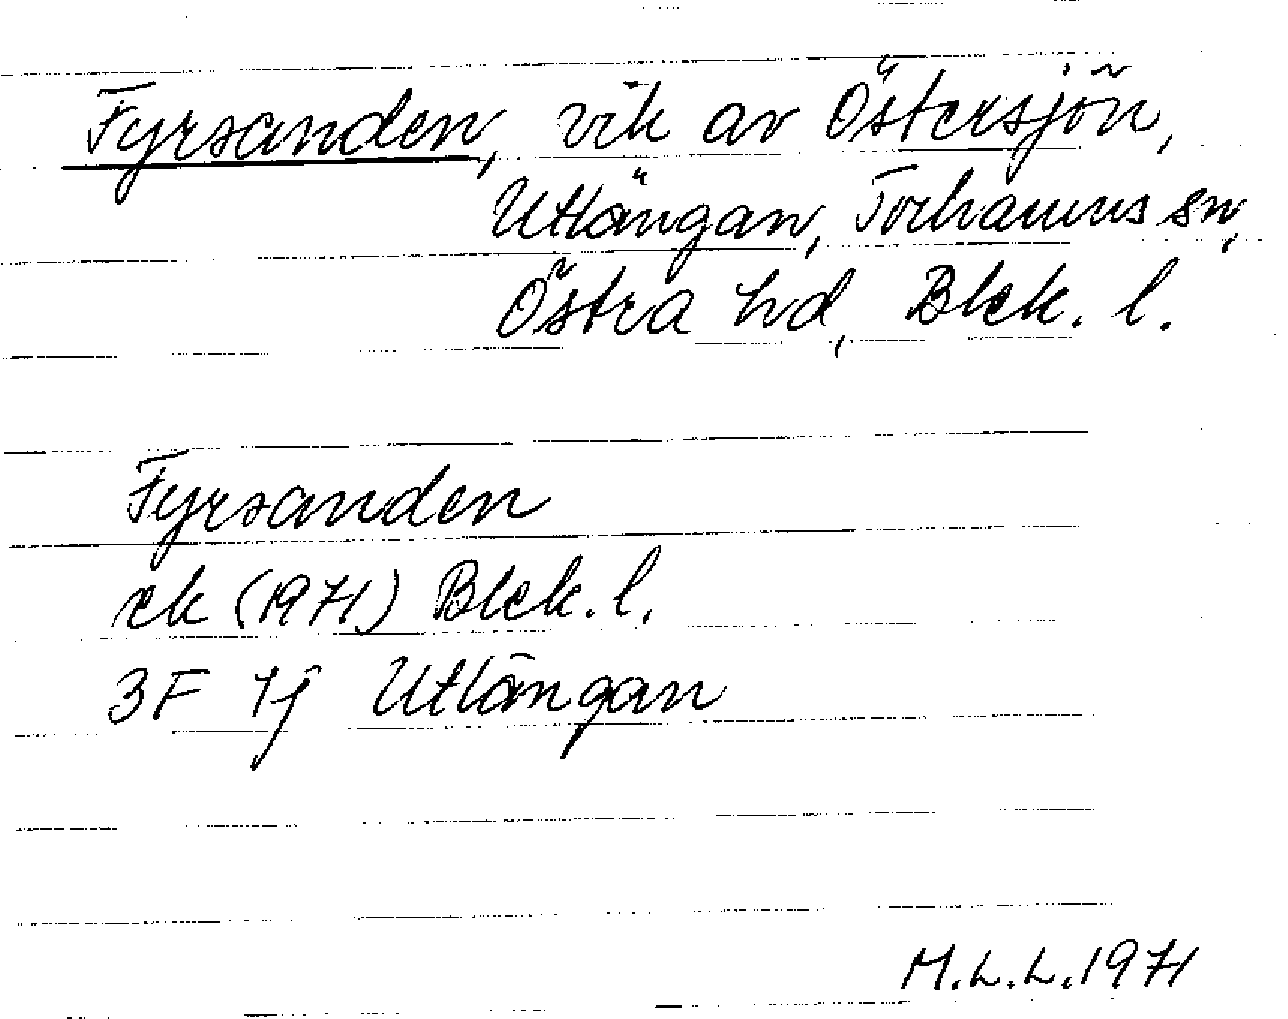 Fyrsanden, vik av Östersjön,
Utlängan, Torhamns sn,
Östra hd, Blek. l.
Fyrsanden
ek (1971) Blek. l.
3F 1j Utlängan
M.L.L. 1971